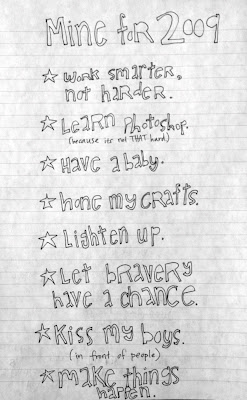 Mine for 2009
☆ work smarter,
not harder.
☆ Learn Photoshop.
(because its not THAT hard)
☆ Have a baby.
☆ hone my crafts.
☆ Lighten up.
☆ Let bravery
have a chance.
☆ Kiss my boys.
(in front of people)
☆ make things
happen.